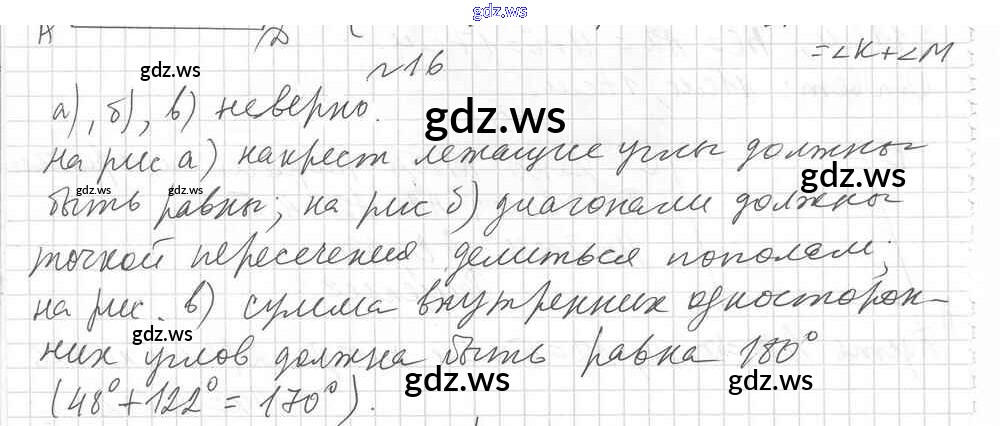 gdz.ws
=∠K+∠M
№16
gdz.ws
а), б), в) неверно.
gdz.ws
на рис а) накрест лежащие углы должны
gdz.ws
gdz.ws gdz.ws
быть равны; на рис б) диагонали должны
точкой пересечения делиться пополам;
на рис. в) сумма внутренних односторон-
gdz.ws
них углов должна быть равна 180°
gdz.ws gdz.ws
(48°+122°=170°).